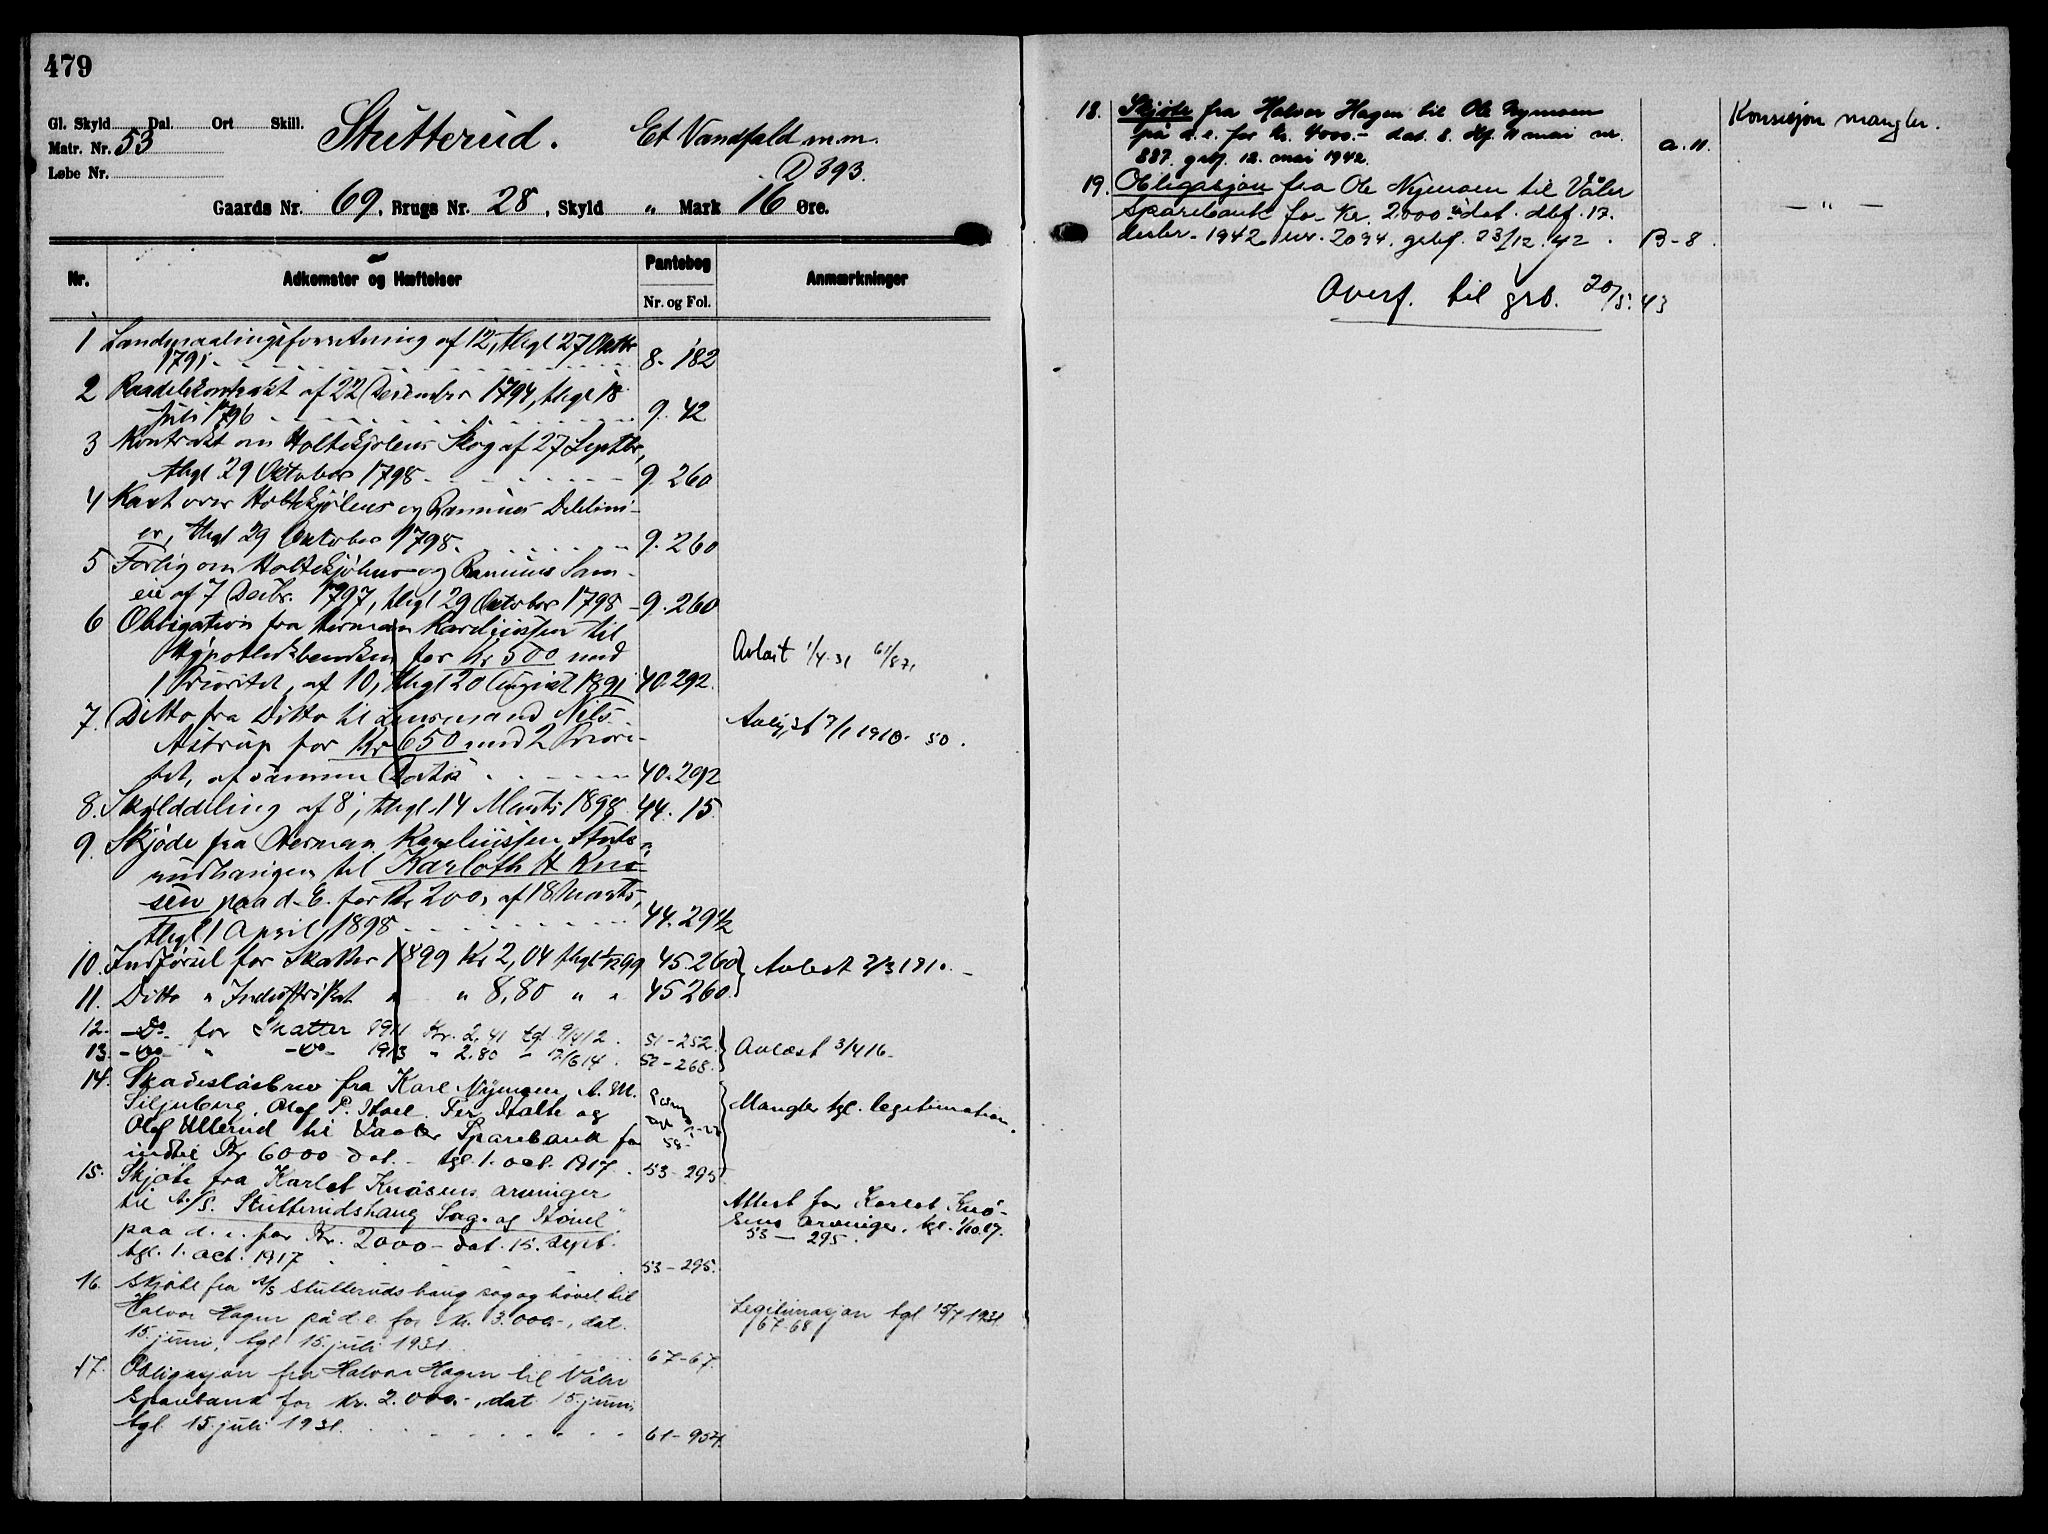 479
Gl. Skyld Dal. Ort Skill.
Matr. Nr. 53
Løbe Nr.
Stutterud. Et Vandfald m.m.
D 393.
Gaards Nr. 69, Brugs Nr. 28, Skyld " Mark 16 Øre.
Nr. Adkomster og Hæftelser Pantebog Anmærkninger
Nr. og Fol.
1 Landmaalingsforretning af 12, thgl 27 Oktbr
1791 8. 182
2 Raadelskontrakt af 22 December 1794, thgl 18
Juli 1796 9. 42
3 Kontrakt om Holtekjølens Skog af 27 Septbr,
thgl 29 Oktober 1798 9. 260
4 Kart over Holtekjølens og Rømmies Delelini-
er, thgl 29 Oktober 1798. 9. 260
5 Forlig om Holtekjølens og Sam-
eie af 7 Decbr. 1797, thgl 29 Oktober 1798 9. 260
6 Obligation fra Herman Kareliussen til
Hypothekbanken for Kr 500 med
1 Prioritet, af 10, thgl 20 August 1891 40. 292.
Avlæst 1/4 31 61/871
7. Ditto fra Ditto til Lensmand Nils
Astrup for Kr 650 med 2 Priori-
tet, af samme Datis 40. 292
Avlyst 7/1 1910. 50.
8. Skylddeling af 8, thgl. 14 Marts 1898 44. 15.
9. Skjøde fra Herman Kareliussen Stutte-
rudhaugen til Karloth H Knø-
sen paa d. E. for Kr 200, af 18 Marts,
thgl 1 April 1898 44. 29 1/2
10. Indførsel for Skatter 1899 Kr 2,04 thgl 1/12 99 45. 260
Avlest 2/3 1910. -
11. Ditto " Industriskat " " 8,80 " " 45 260.
12. - Do - for Skatter 1911 Kr. 2,41 tgl 9/4 12. 51 - 252.
13. - Do - " - Do - 1913 " 2,80 " 12/6 14. 52 - 268.
Avlæst 3/4 16 -
14. Skadesløsbrev fra Karl Nymoen, A. M.
Siljuberg, Olaf P. Hoel, Per Holte og
Olaf Ullerud til Vaaler Sparebank for
indtil Kr 6000 dat. - tgl. 1. oct. 1917. 53 - 295
Mangler tgl. legitimation.
15. Skjøte fra Karlot Knøsens arvinger
til A./S. "Stutterudshaug Sag- og Høvel"
paa d. e. for Kr. 2000 - dat. 15. sept.
tgl. 1. oct. 1917 53 - 295.
Attest for Karlot Knø-
sens arvinger, tgl. 1/10 17.
53 - 295.
16. Skjøte fra A/S Stutteruds haug sag og høvel til
Halvor Hagen på d. e. for kr. 3.000 -, dat.
15. juni, tgl 15. juli 1931. 67 - 67.
Legitimasjon tgl 15/7 1931.
67 - 68
17. Obligasjon fra Halvor Hagen til Våler
Sparebank for kr. 2.000 -, dat 15. juni
tgl 15. juli 1931. 61 - 957.
18. Skjøte fra Halvor Hagen til Ole Nymoen
på d. e. for kr. 4000.- dat. 8. dbf. 11 mai nr.
887. grbf. 12. mai 1942. a. 11.
Konsesjon mangler.
19. Obligasjon fra Ole Nymoen til Våler
Sparebank for kr. 2000.- dat. dbf. 17.
desbr. 1942 nr. 2094. grbf. 23/12. 42. B - 8.
— " —
Overf. til grb. 20/5. 43